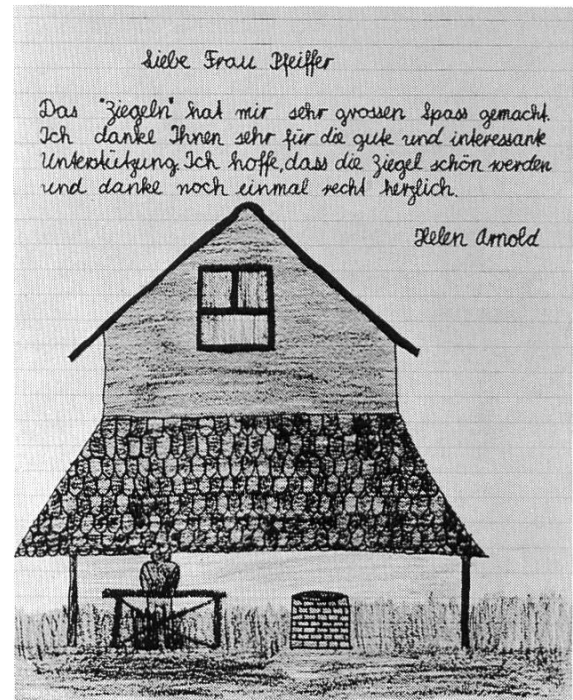 Liebe Frau Pfeiffer
Das "Ziegeln" hat mir sehr grossen Spass gemacht.
Ich danke Ihnen sehr für die gute und interessante
Unterstützung. Ich hoffe, dass die Ziegel schön werden
und danke noch einmal recht herzlich.
Helen Arnold